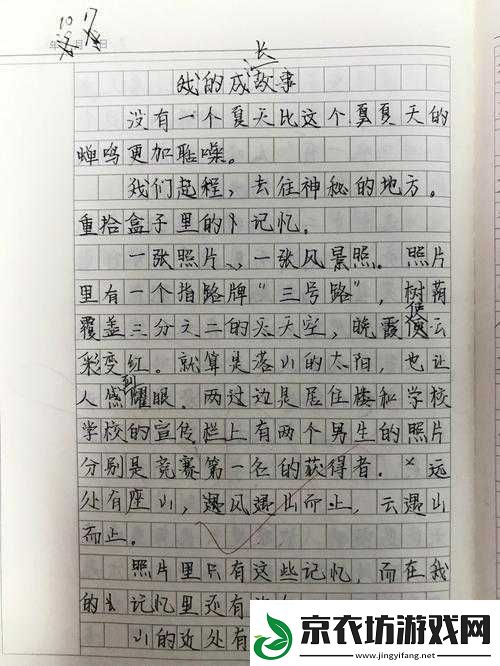 10 17
年 月 日
我的成长故事
没有一个夏天比这个夏夏天的
蝉鸣更加聒噪。
我们起程,去往神秘的地方。
重拾盒子里的卜记忆。
一张照片、一张风景照。照片
里有一个指路牌“三号路”,树荫
覆盖三分之二的天天空,晚霞使云
彩变红。就算是落山的太阳,也让
人感到耀眼。两过边是居住楼和学校
学校的宣传栏上有两个男生的照片
分别是竞赛第一名的获得者。远
处有座山,遇风遇山而止,云遇山
而止。
照片里只有这些记忆,而在我
的卜记忆里还有
山的近处有
京农坊游戏网
www.jingyifang.net